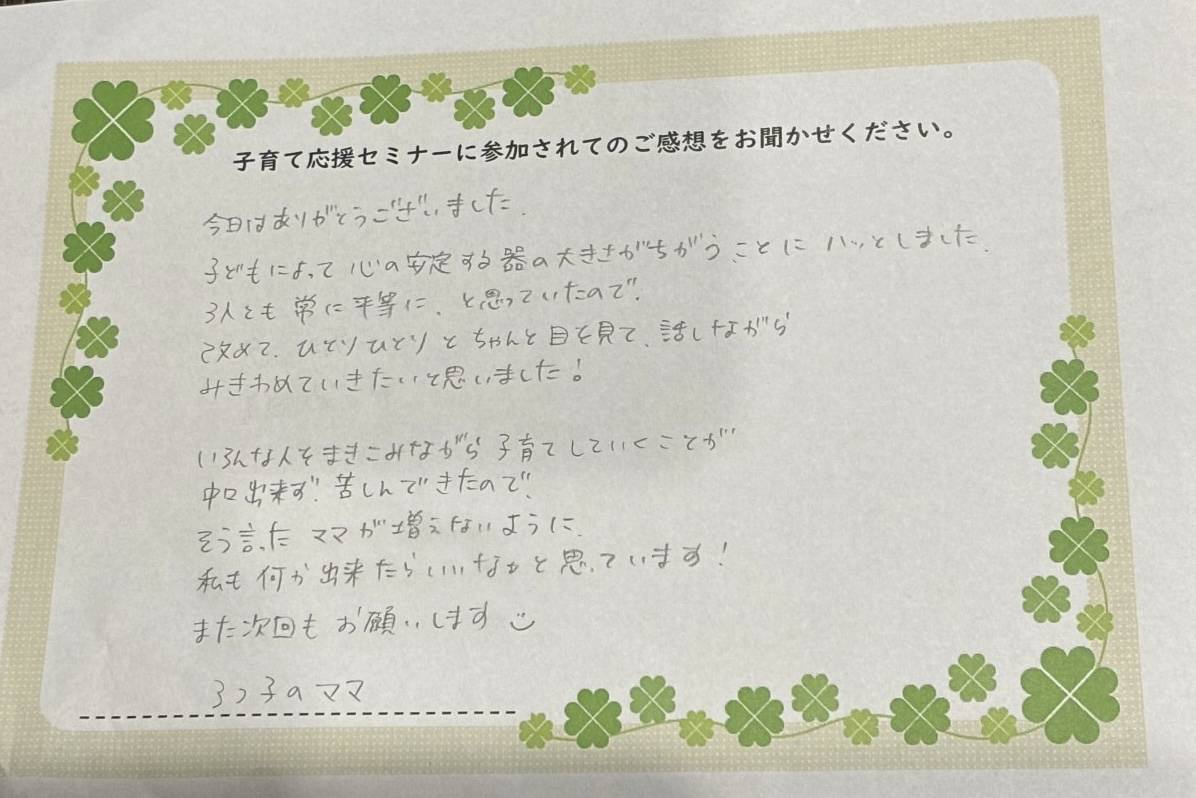 子育て応援セミナーに参加されてのご感想をお聞かせください。
今日はありがとうございました.
子どもによって 心の安定する器の大きさがちがう ことに ハッとしました.
3人とも 常に平等に、と思っていたので、
改めて、ひとりひとりとちゃんと目を見て、話しながら
みきわめていきたいと思いました！
いろんな人をまきこみながら子育てしていくことが
中々出来ず、苦しんできたので、
そう言ったママが増えないように、
私も何か出来たらいいなかと思っています！
また次回もお願いします
3つ子のママ